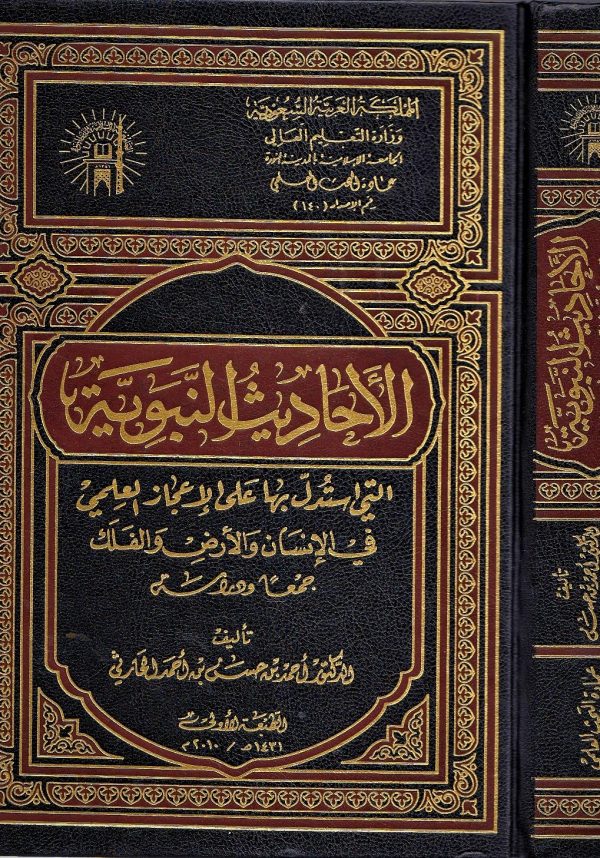 المملكة العربية السعودية
وزارة التعليم العالي
الجامعة الإسلامية بالمدينة المنورة
عمادة البحث العلمي
رقم الإصدار (١٤٠)
الأحاديث النبوية
التي استدل بها على الإعجاز العلمي
في الإنسان والأرض والفلك
جمعًا ودراسة
تأليف
الدكتور أحمد بن حسن بن أحمد الحارثي
الطبعة الأولى
١٤٣١هـ / ٢٠١٠م
الأحاديث النبوية
تأليف
عمادة البحث العلمي